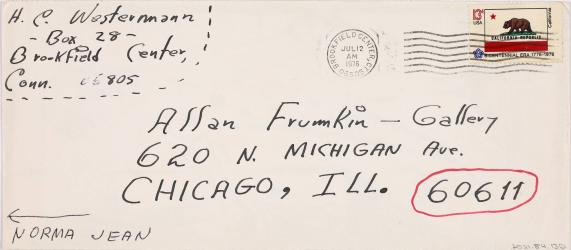 H. C. Westermann
- Box 28 -
Brookfield Center,
Conn. 05805
BROOKFIELD CENTER, CT.
JUL 12
AM
1976
06805
13c
USA
California
CALIFORNIA REPUBLIC
BICENTENNIAL ERA 1776-1976
Allan Frumkin - Gallery
620 N. MICHIGAN Ave.
CHICAGO, ILL. 60611
NORMA JEAN
2021.84.13D